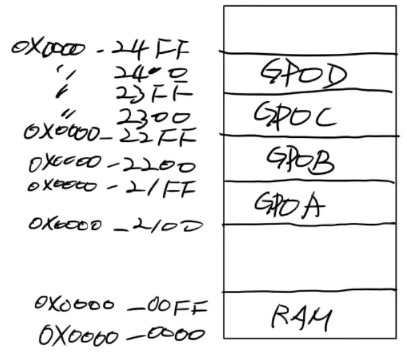 0X0000-24FF
" 2400
GPOD
" 23FF
" 2300
GPOC
0X0000-22FF
0X0000-2200
GPOB
0X0000-21FF
0X0000-2100
GPOA
0X0000-00FF
0X0000-0000
RAM